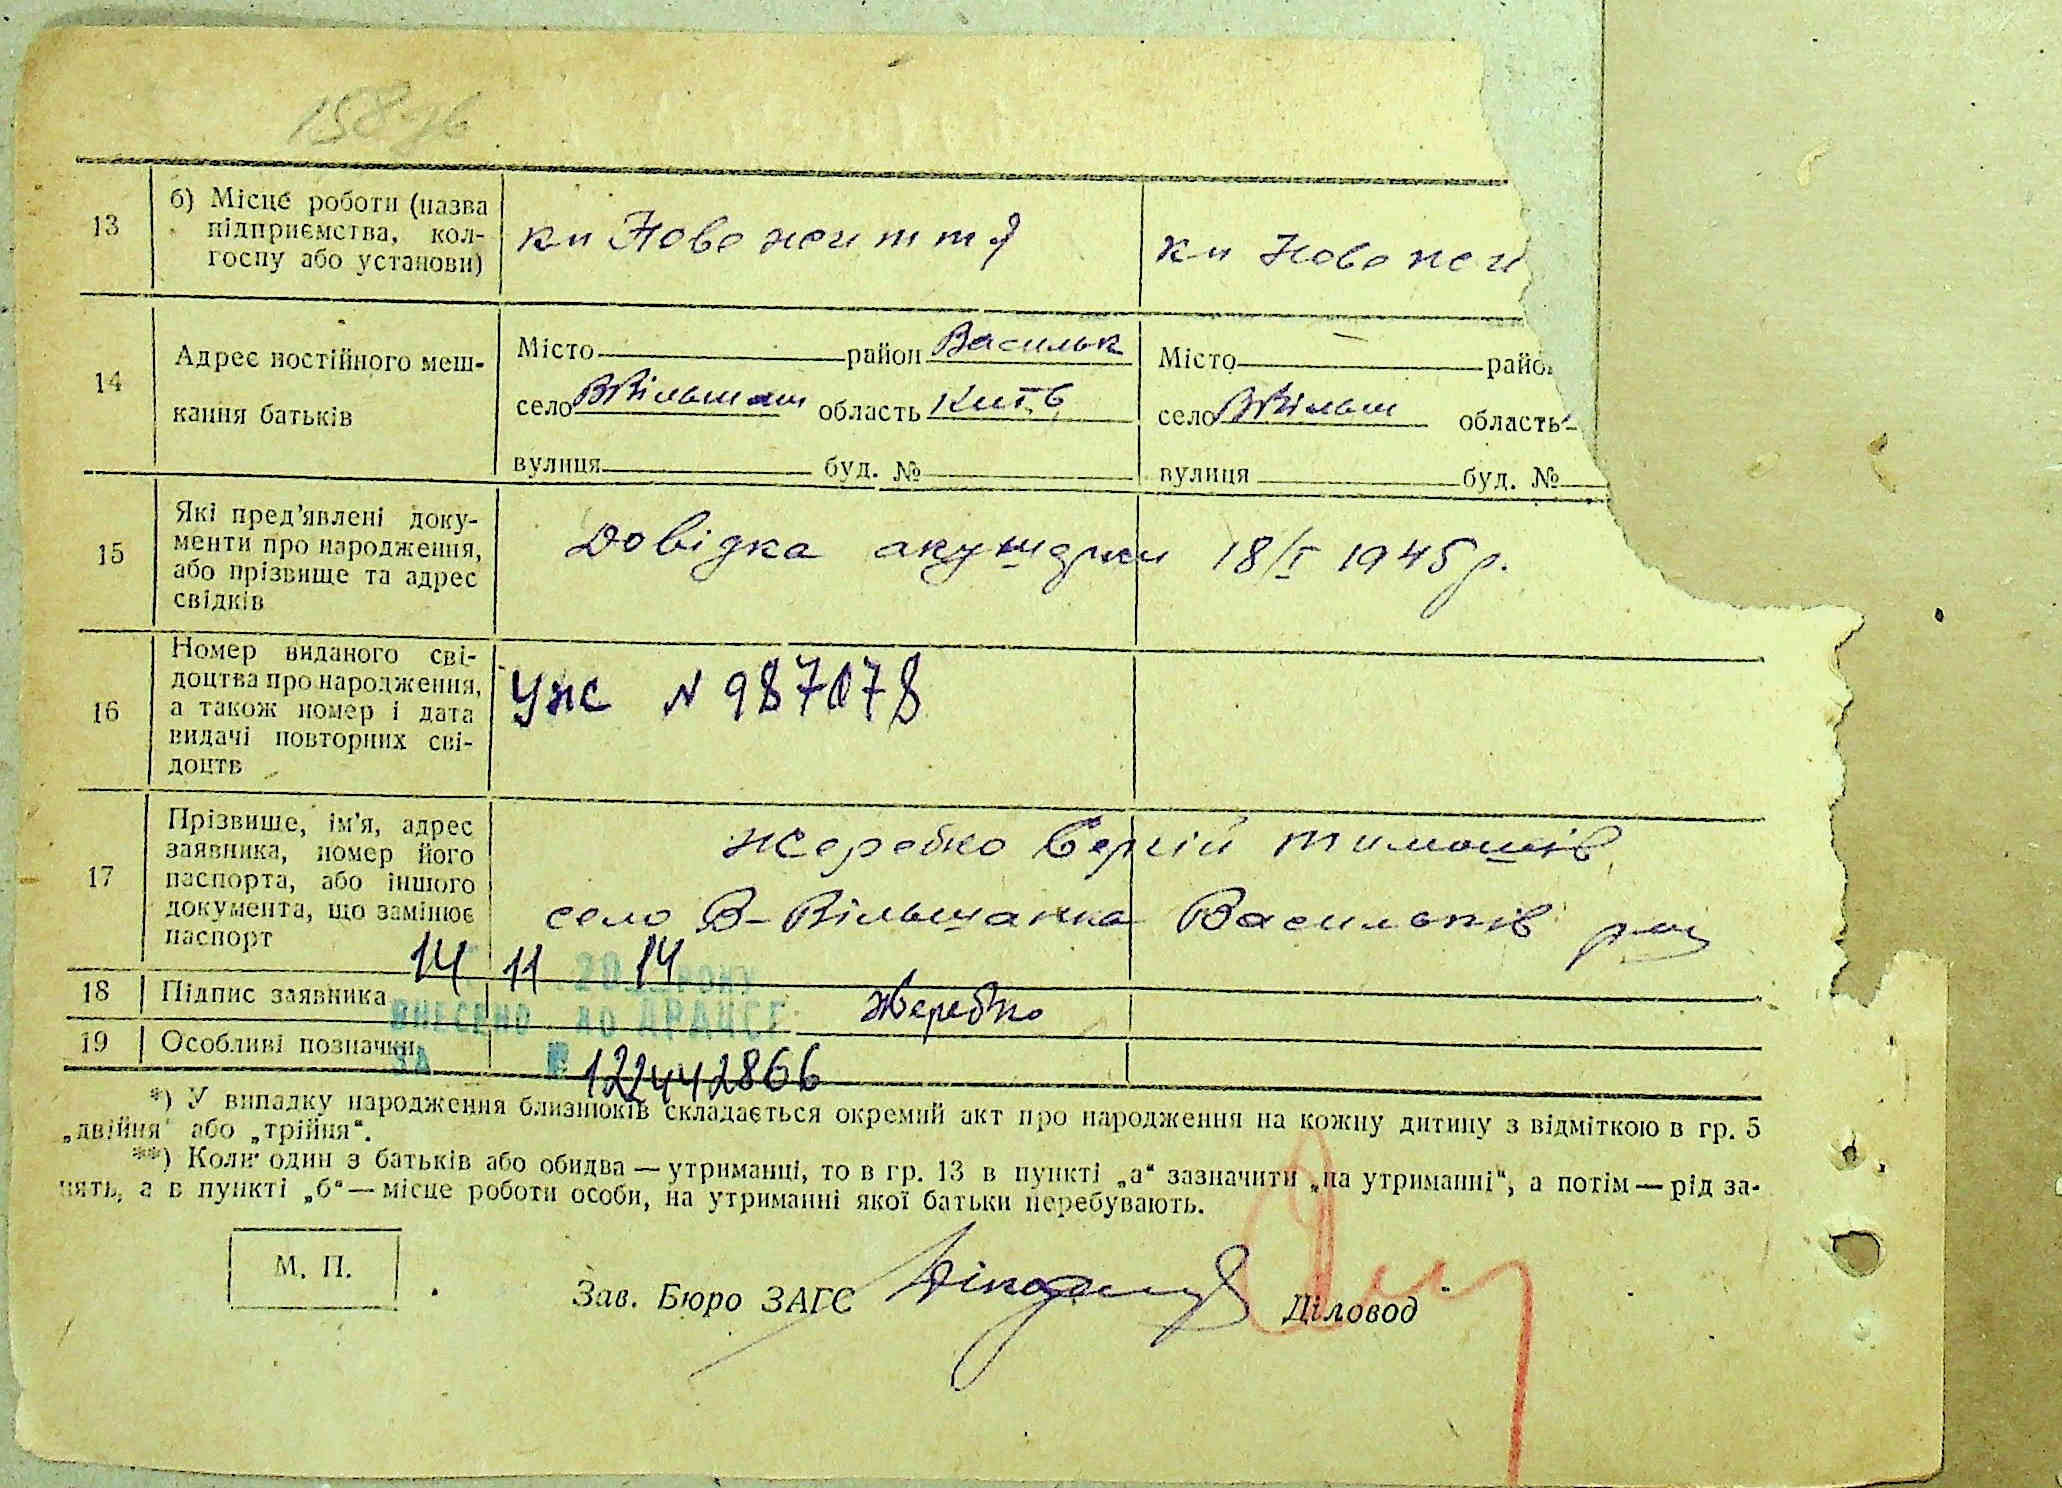 158зв
13
б) Місце роботи (назва
підприємства, кол-
госпу або установи)
кп Нове життя
кп Нове жи
14
Адрес постійного меш-
кання батьків
Місто район Васильк
село ВВільшан область Київ
вулиця буд. №
Місто райо
село ВВільш область
вулиця буд. №
15
Які пред'явлені доку-
менти про народження,
або прізвище та адрес
свідків
Довідка акушерки 18/I 1945 р.
16
Номер виданого сві-
доцтва про народження,
а також номер і дата
видачі повторних сві-
доцтв
УЖС N 987078
17
Прізвище, ім'я, адрес
заявника, номер його
паспорта, або іншого
документа, що замінює
паспорт
Жеребко Сергій Тимошів
село В-Вільшанка Васильків р-ну
14 11 2014 РОКУ
18 Підпис заявника
ВНЕСЕНО ДО ДРАЦСГ
Жеребко
19 Особливі позначки
ЗА № 122442866
*) У випадку народження близнюків складається окремий акт про народження на кожну дитину з відміткою в гр. 5
„двійня" або „трійня“.
**) Коли один з батьків або обидва — утриманці, то в гр. 13 в пункті „а“ зазначити „на утриманні“, а потім — рід за-
нять, а в пункті „б“ — місце роботи особи, на утриманні якої батьки перебувають.
М. П.
Зав. Бюро ЗАГС
Діловод